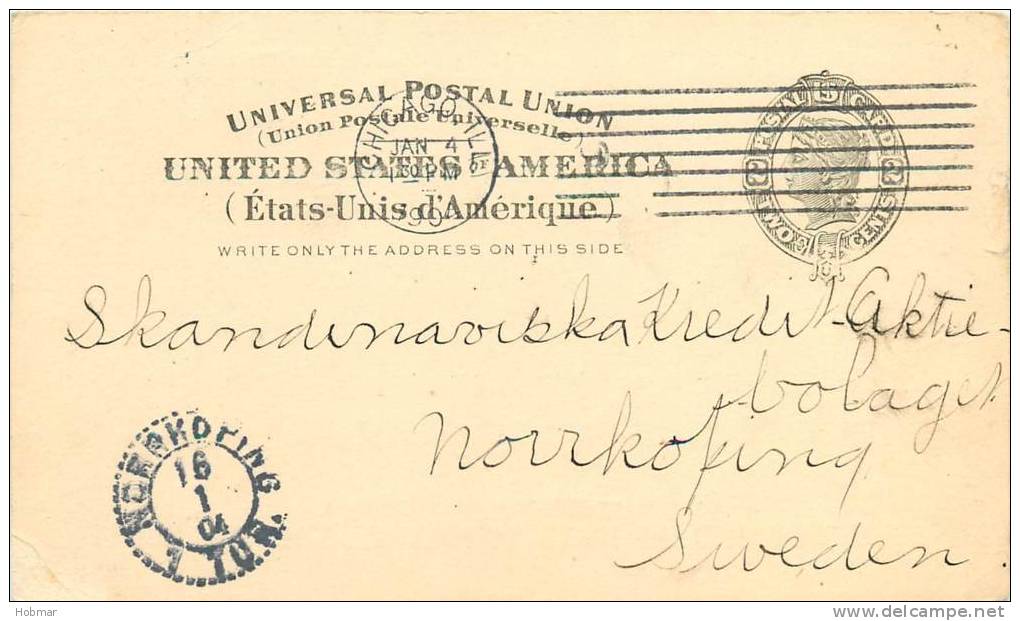 UNIVERSAL POSTAL UNION
(Union Postale Universelle)
UNITED STATES AMERICA
(États-Unis d'Amérique)
WRITE ONLY THE ADDRESS ON THIS SIDE
CHICAGO, ILL.
JAN 4
PM
TWO CENTS
2 2
Skandinaviska Kredit-Aktie-
bolaget
Norrköping
Sweden
NORRKÖPING
16
1
04
Hobmar
www.delcampe.net